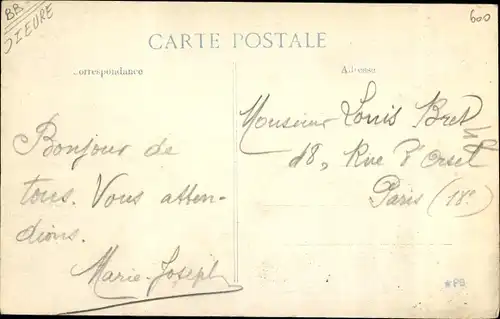 BB
DIEURE
600
CARTE POSTALE
Correspondance
Adresse
Bonjour de
tous. Vous atten-
dions.
Marie-Joseph
Monsieur Louis Bret
18, Rue d'Orsel
Paris (18e
*PB